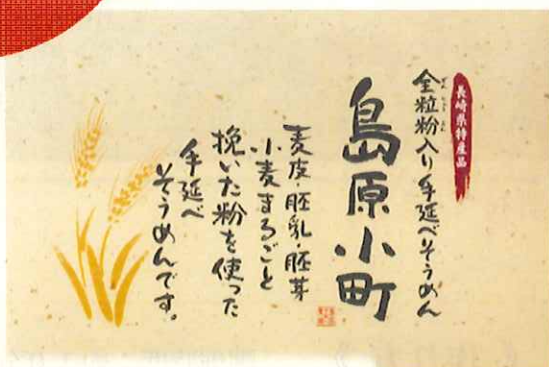 長崎県特産品
全粒粉入り手延べそうめん
島原小町
麦皮・胚乳・胚芽
小麦まるごと
挽いた粉を使った
手延べ
そうめんです。